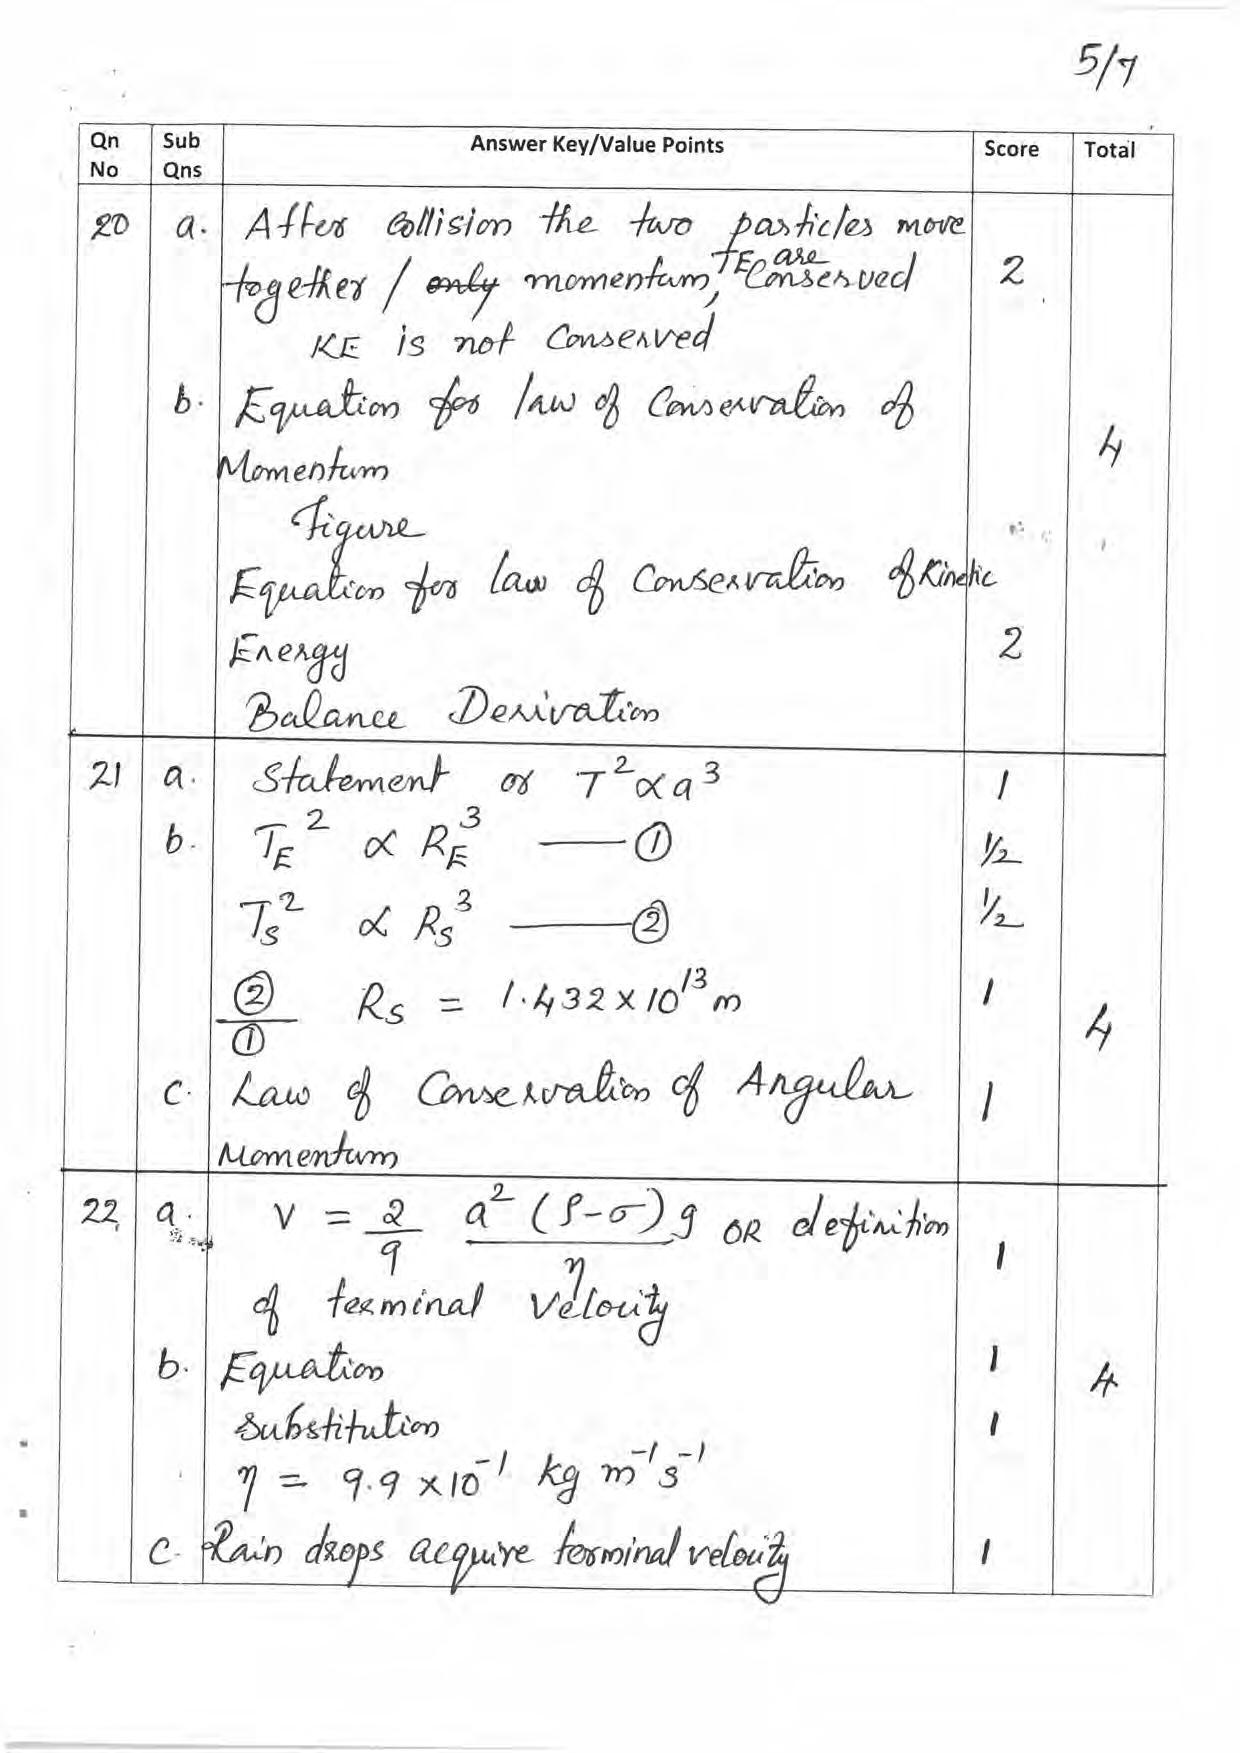 5/7
Qn No Sub Qns Answer Key/Value Points Score Total
20 a. After collision the two particles move
together / only momentum, TE are conserved 2
KE is not conserved
b. Equation for law of conservation of
Momentum 4
Figure
Equation for law of conservation of Kinetic
Energy 2
Balance Derivation
21 a. Statement or T² ∝ a³ 1
b. T_E² ∝ R_E³ —— ① ½
T_S² ∝ R_S³ —— ② ½
②/① R_S = 1.432 × 10¹³ m 1 4
c. Law of Conservation of Angular 1
Momentum
22 a. V = 2/9 a² (ρ-σ) g / η OR definition 1
of terminal velocity
b. Equation 1 4
Substitution 1
η = 9.9 × 10⁻¹ kg m⁻¹ s⁻¹
c. Rain drops acquire terminal velocity 1